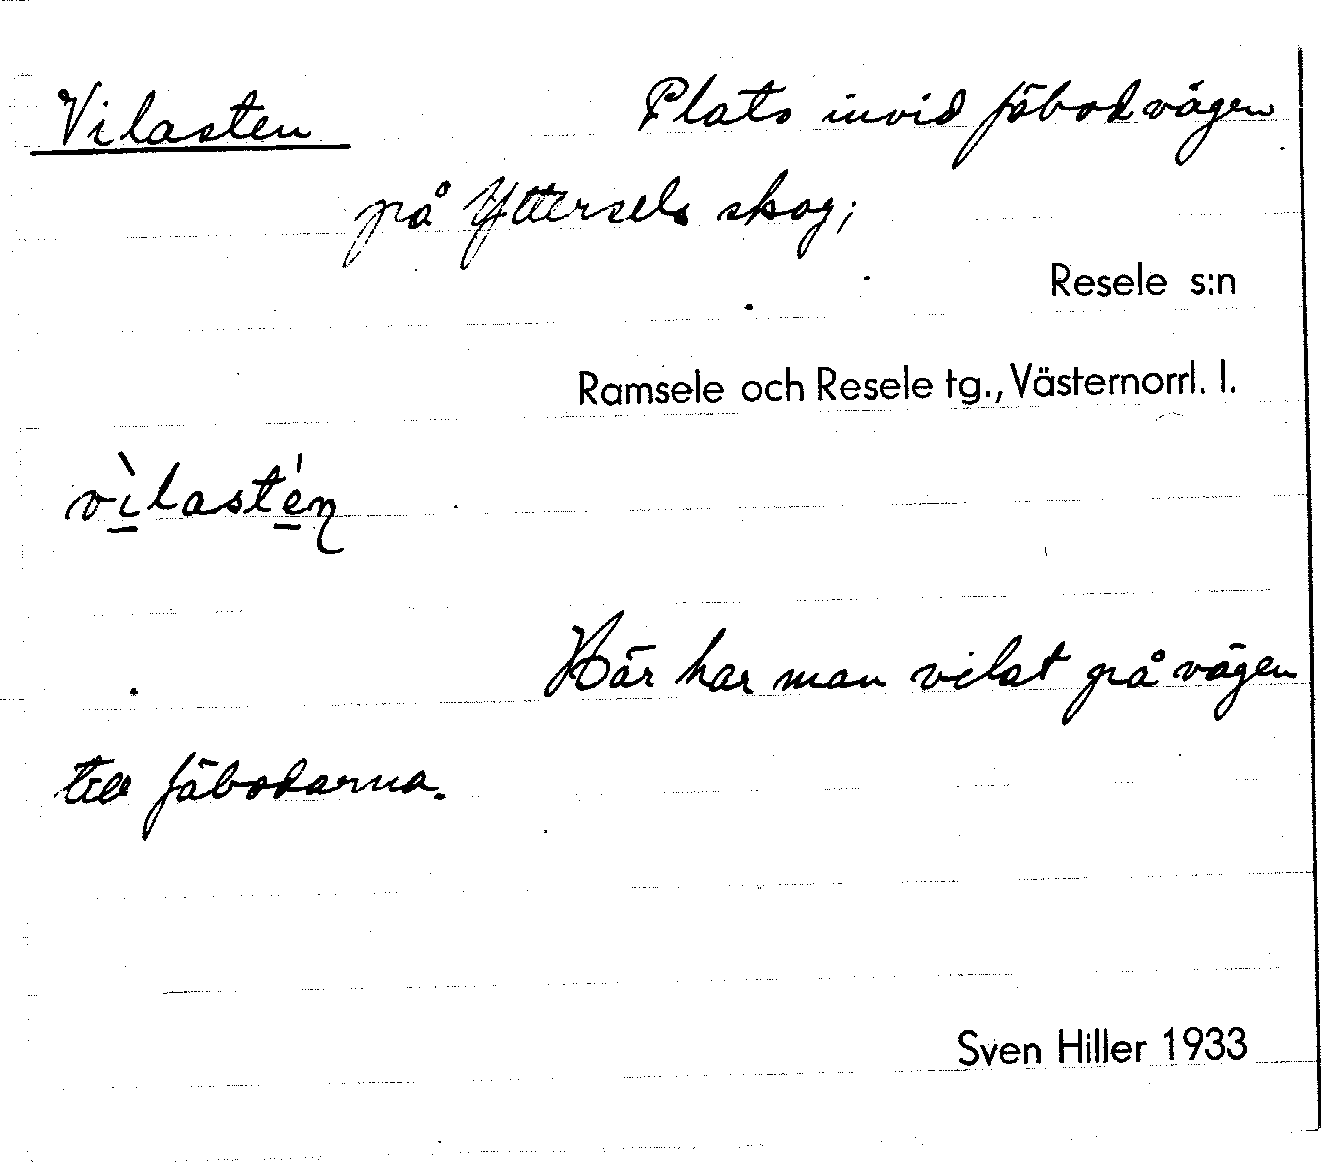 Vilasten Plats invid fäbodvägen
på Yttersels skog;
Resele s:n
Ramsele och Resele tg., Västernorrl. l.
vì̱lasté̱n̥
Här har man vilat på vägen
till fäbodarna.
Sven Hiller 1933